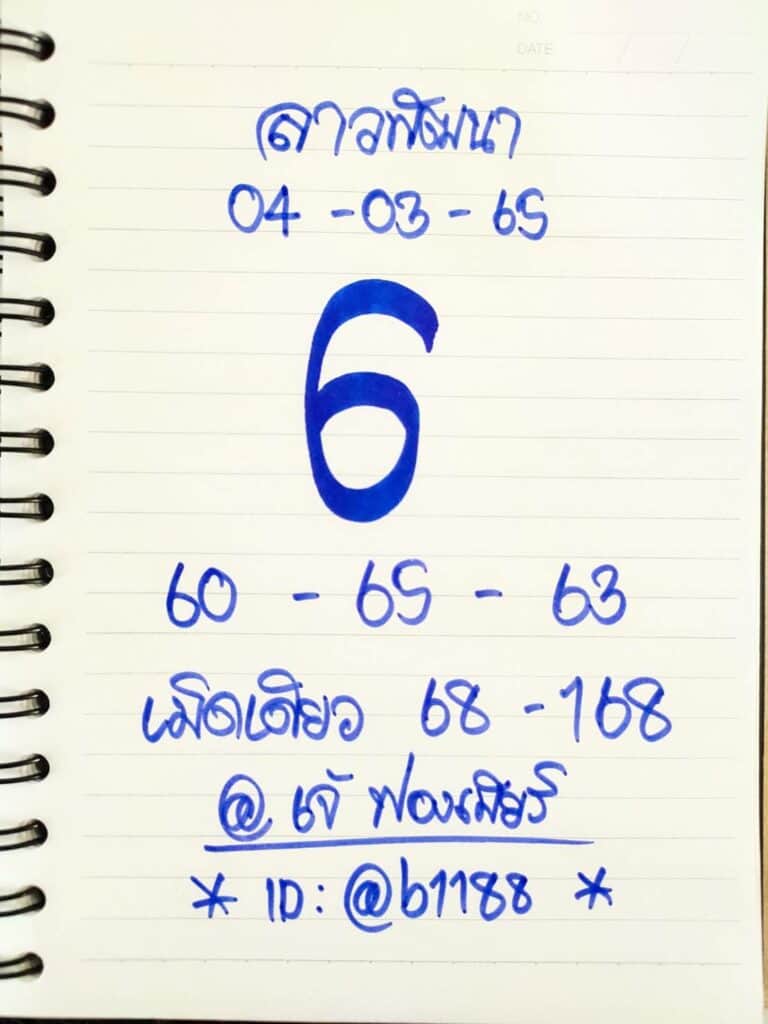 NO.
DATE
ลาวพัฒนา
04 - 03 - 65
6
60 - 65 - 63
เม็ดเดียว 68 - 168
@ เจ๊ ฟองเบียร์
* ID: @b1188 *